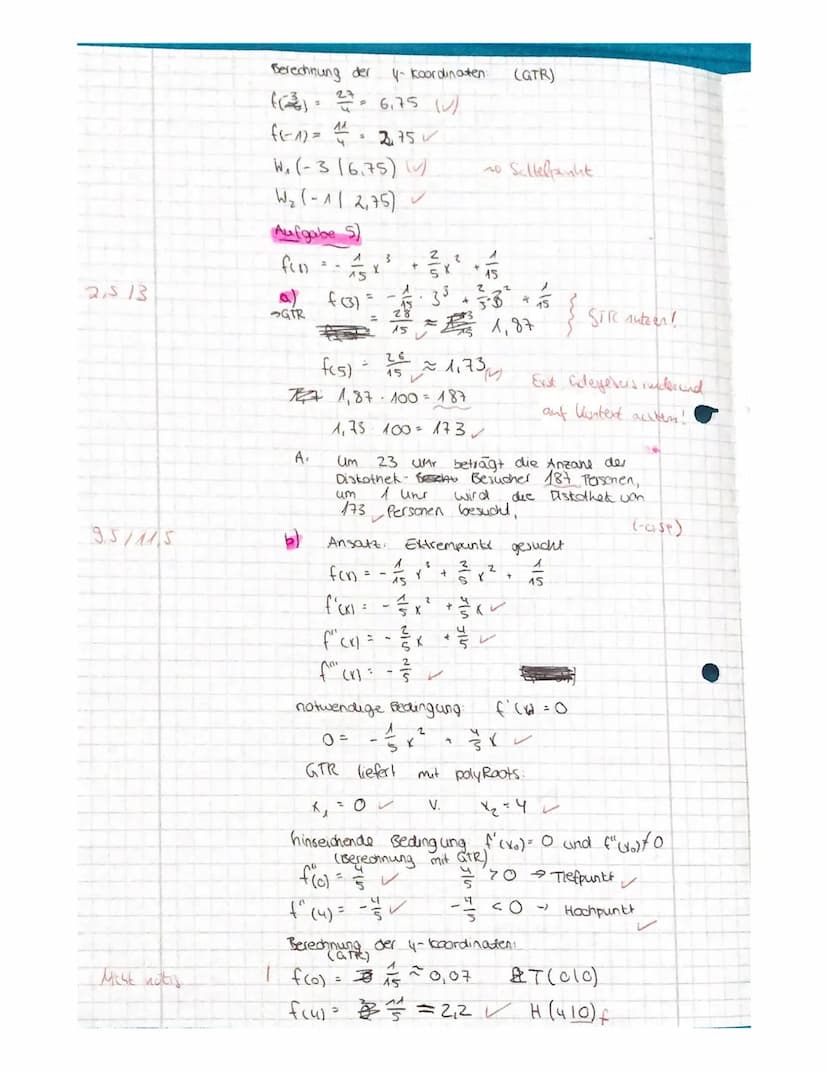 Berechnung der y-Koordinaten: (GTR)
f(-3) = 27/4 = 6,75 (✓)
f(-1) = 11/4 = 2,75 ✓
W₁(-3|6,75) (✓) → Sattelpunkt
W₂(-1|2,75) ✓
Aufgabe 5)
f(x) = -1/15 x³ + 2/5 x² + 1/15
2,5/3
a) f(3) = -1/15 · 3³ + 2/5 · 3² + 1/15
→GTR = 28/15 ✓ ≈ 1,87 } GTR nutzen!
f(5) = 26/15 ✓ ≈ 1,73 (✓)
1,87 · 100 = 187
auf Kontext achten!
1,73 · 100 = 173 ✓
A. Um 23 Uhr beträgt die Anzahl der
Diskothek- Besucher 187 Personen,
um 1 Uhr wird die Diskothek von
173 ✓ Personen besucht.
9,5/11,5
b) Ansatz: Extrempunkt gesucht
f(x) = -1/15 x³ + 2/5 x² + 1/15
f'(x) = -1/5 x² + 4/5 x ✓
f''(x) = -2/5 x + 4/5 ✓
f'''(x) = -2/5 ✓
notwendige Bedingung: f'(x) = 0
0 = -1/5 x² + 4/5 x ✓
GTR liefert mit polyRoots:
x₁ = 0 ✓ v. x₂ = 4 ✓
hinreichende Bedingung f'(x₀) = 0 und f''(x₀) ≠ 0
(Berechnung mit GTR)
f''(0) = 4/5 ✓ 4/5 > 0 → Tiefpunkt ✓
f''(4) = -4/5 ✓ -4/5 < 0 → Hochpunkt ✓
Berechnung der y-Koordinaten:
(GTR)
Nicht nötig
f(0) = 1/15 ≈ 0,07 T(0|0)
f(4) = 11/5 = 2,2 ✓ H(4|0) f